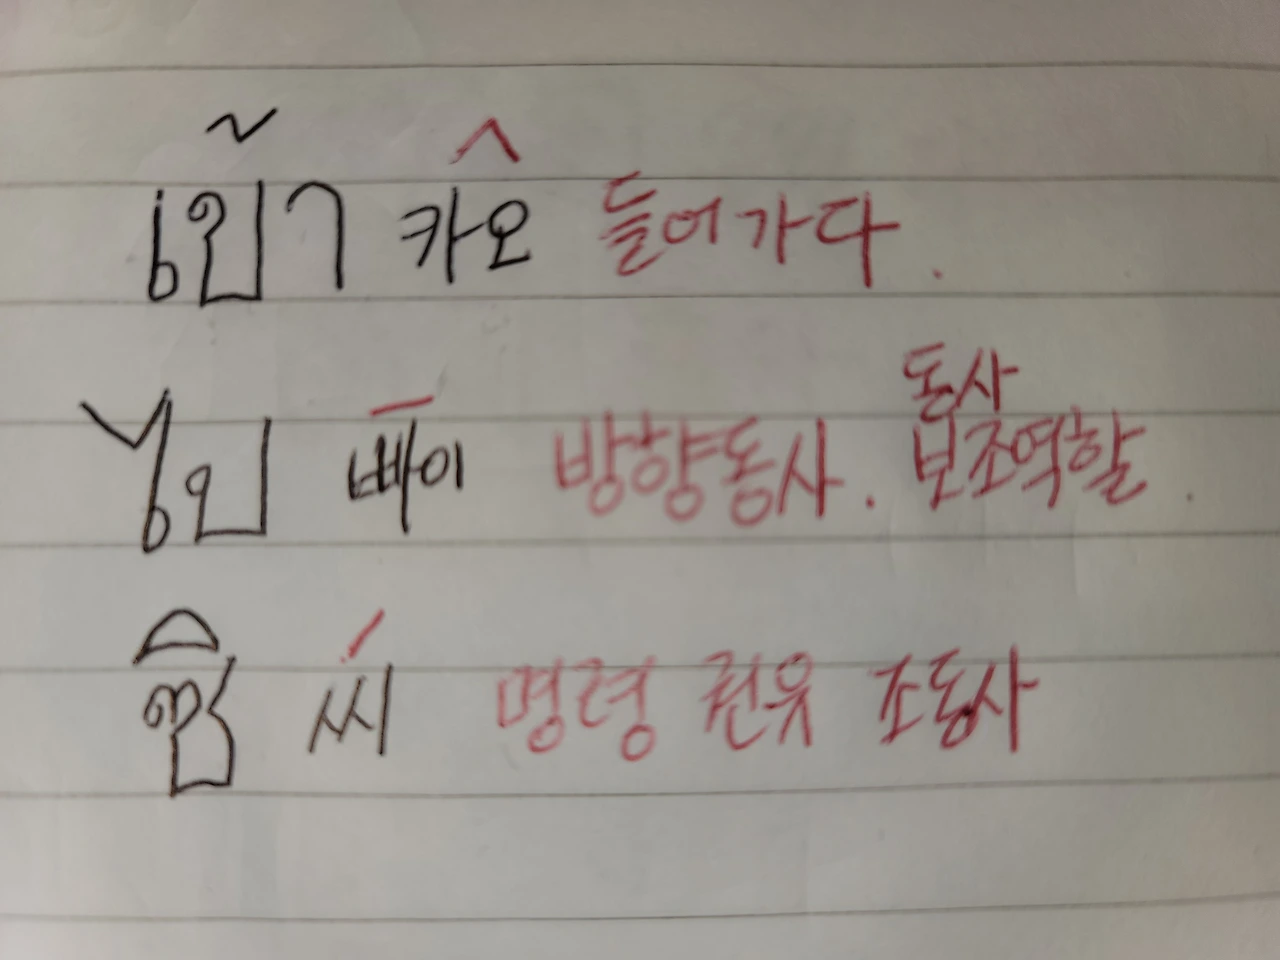 เข้า 카오 들어가다.
ไป 빠이 방향동사. 동사 보조역할.
ซิ 씨 명령 권유 조동사